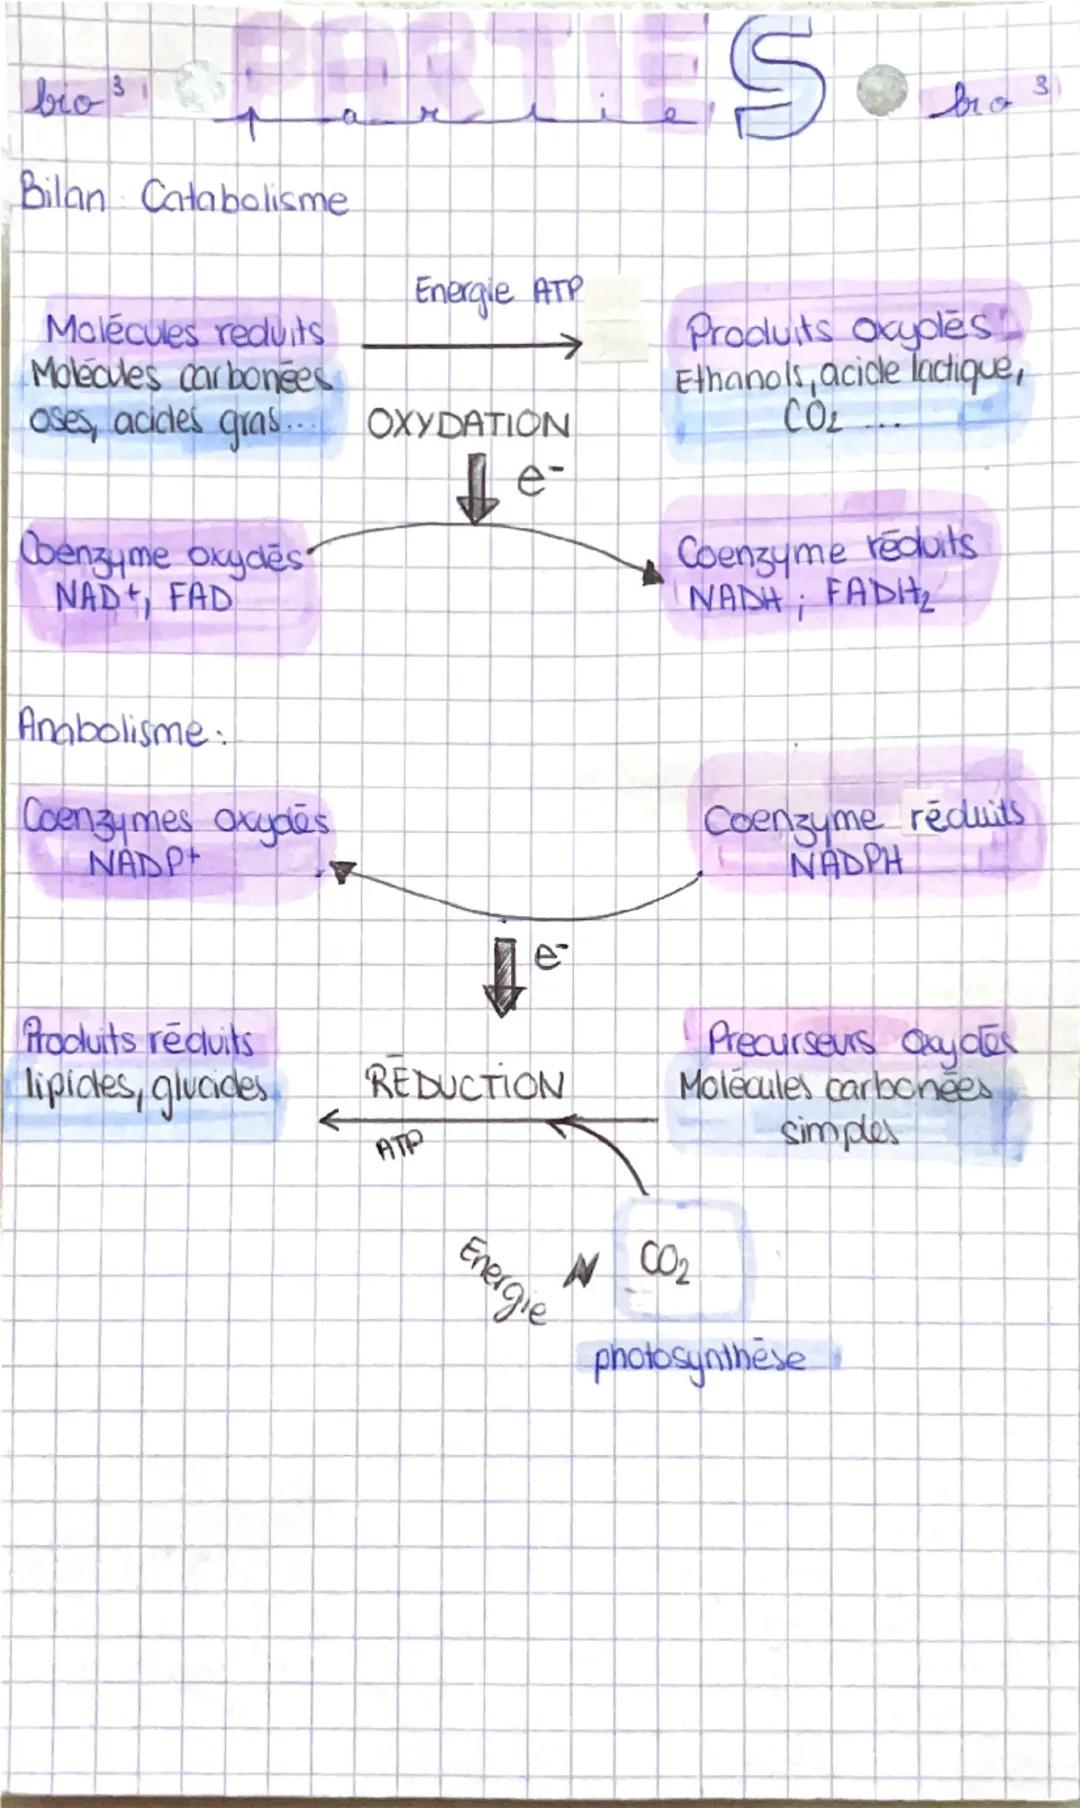 PARTIE S
bio 3
partie
bio 3
Bilan : Catabolisme
Energie ATP
Molécules reduits
Molécules carbonées
oses, acides gras...
OXYDATION
e-
Produits oxydés
Ethanols, acide lactique,
CO2 ...
Coenzyme oxydés
NAD+, FAD
Coenzyme réduits
NADH ; FADH2
Anabolisme :
Coenzymes oxydés
NADP+
Coenzyme réduits
NADPH
e-
Produits réduits
lipides, glucides
RÉDUCTION
ATP
Precurseurs oxydés
Molécules carbonées
simples
Energie
CO2
photosynthèse